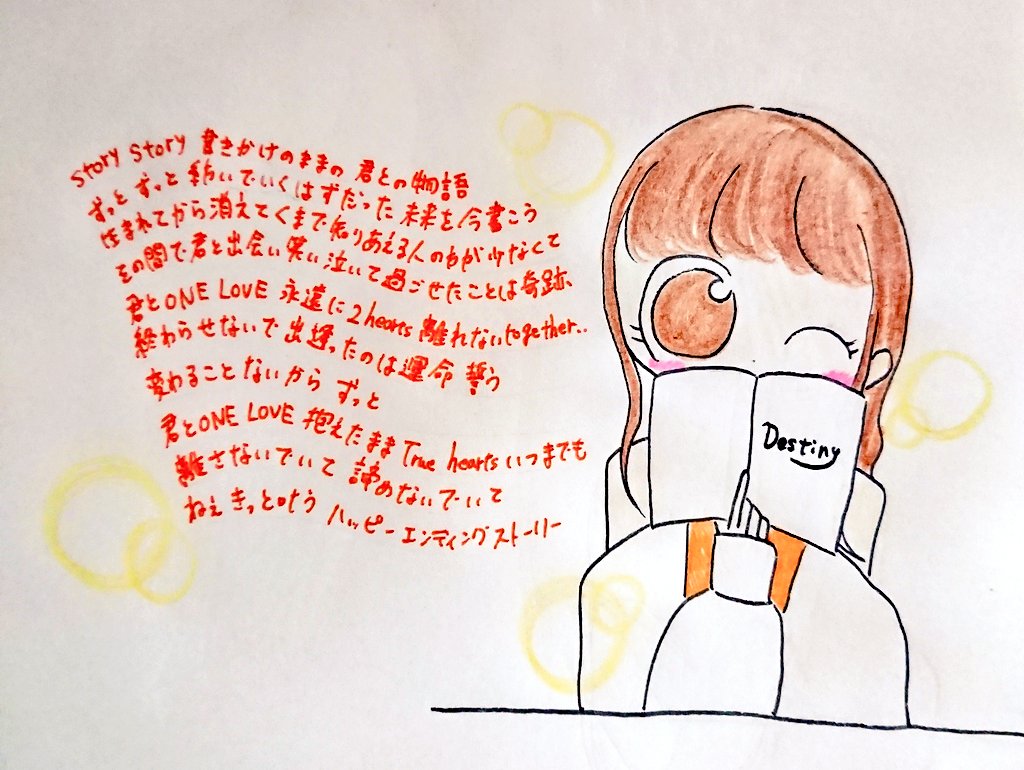 Story Story 書きかけのままの 君との物語
ずっと ずっと 続いでいくはずだった 未来を今書こう
生まれてから消えてくまで知りあえる人のが少なくて
その間で君と出会い笑い泣いて過ごせたことは奇跡、
君とONE LOVE 永遠に2hearts 離れないtogether..
終わらせないで 出逢ったのは運命 誓う
変わることないから ずっと
君とONE LOVE 抱えたままTrue heartsいつまでも
離さないでいて 諦めないでいて
ねぇ きっと叶う ハッピーエンディングストーリー
Destiny